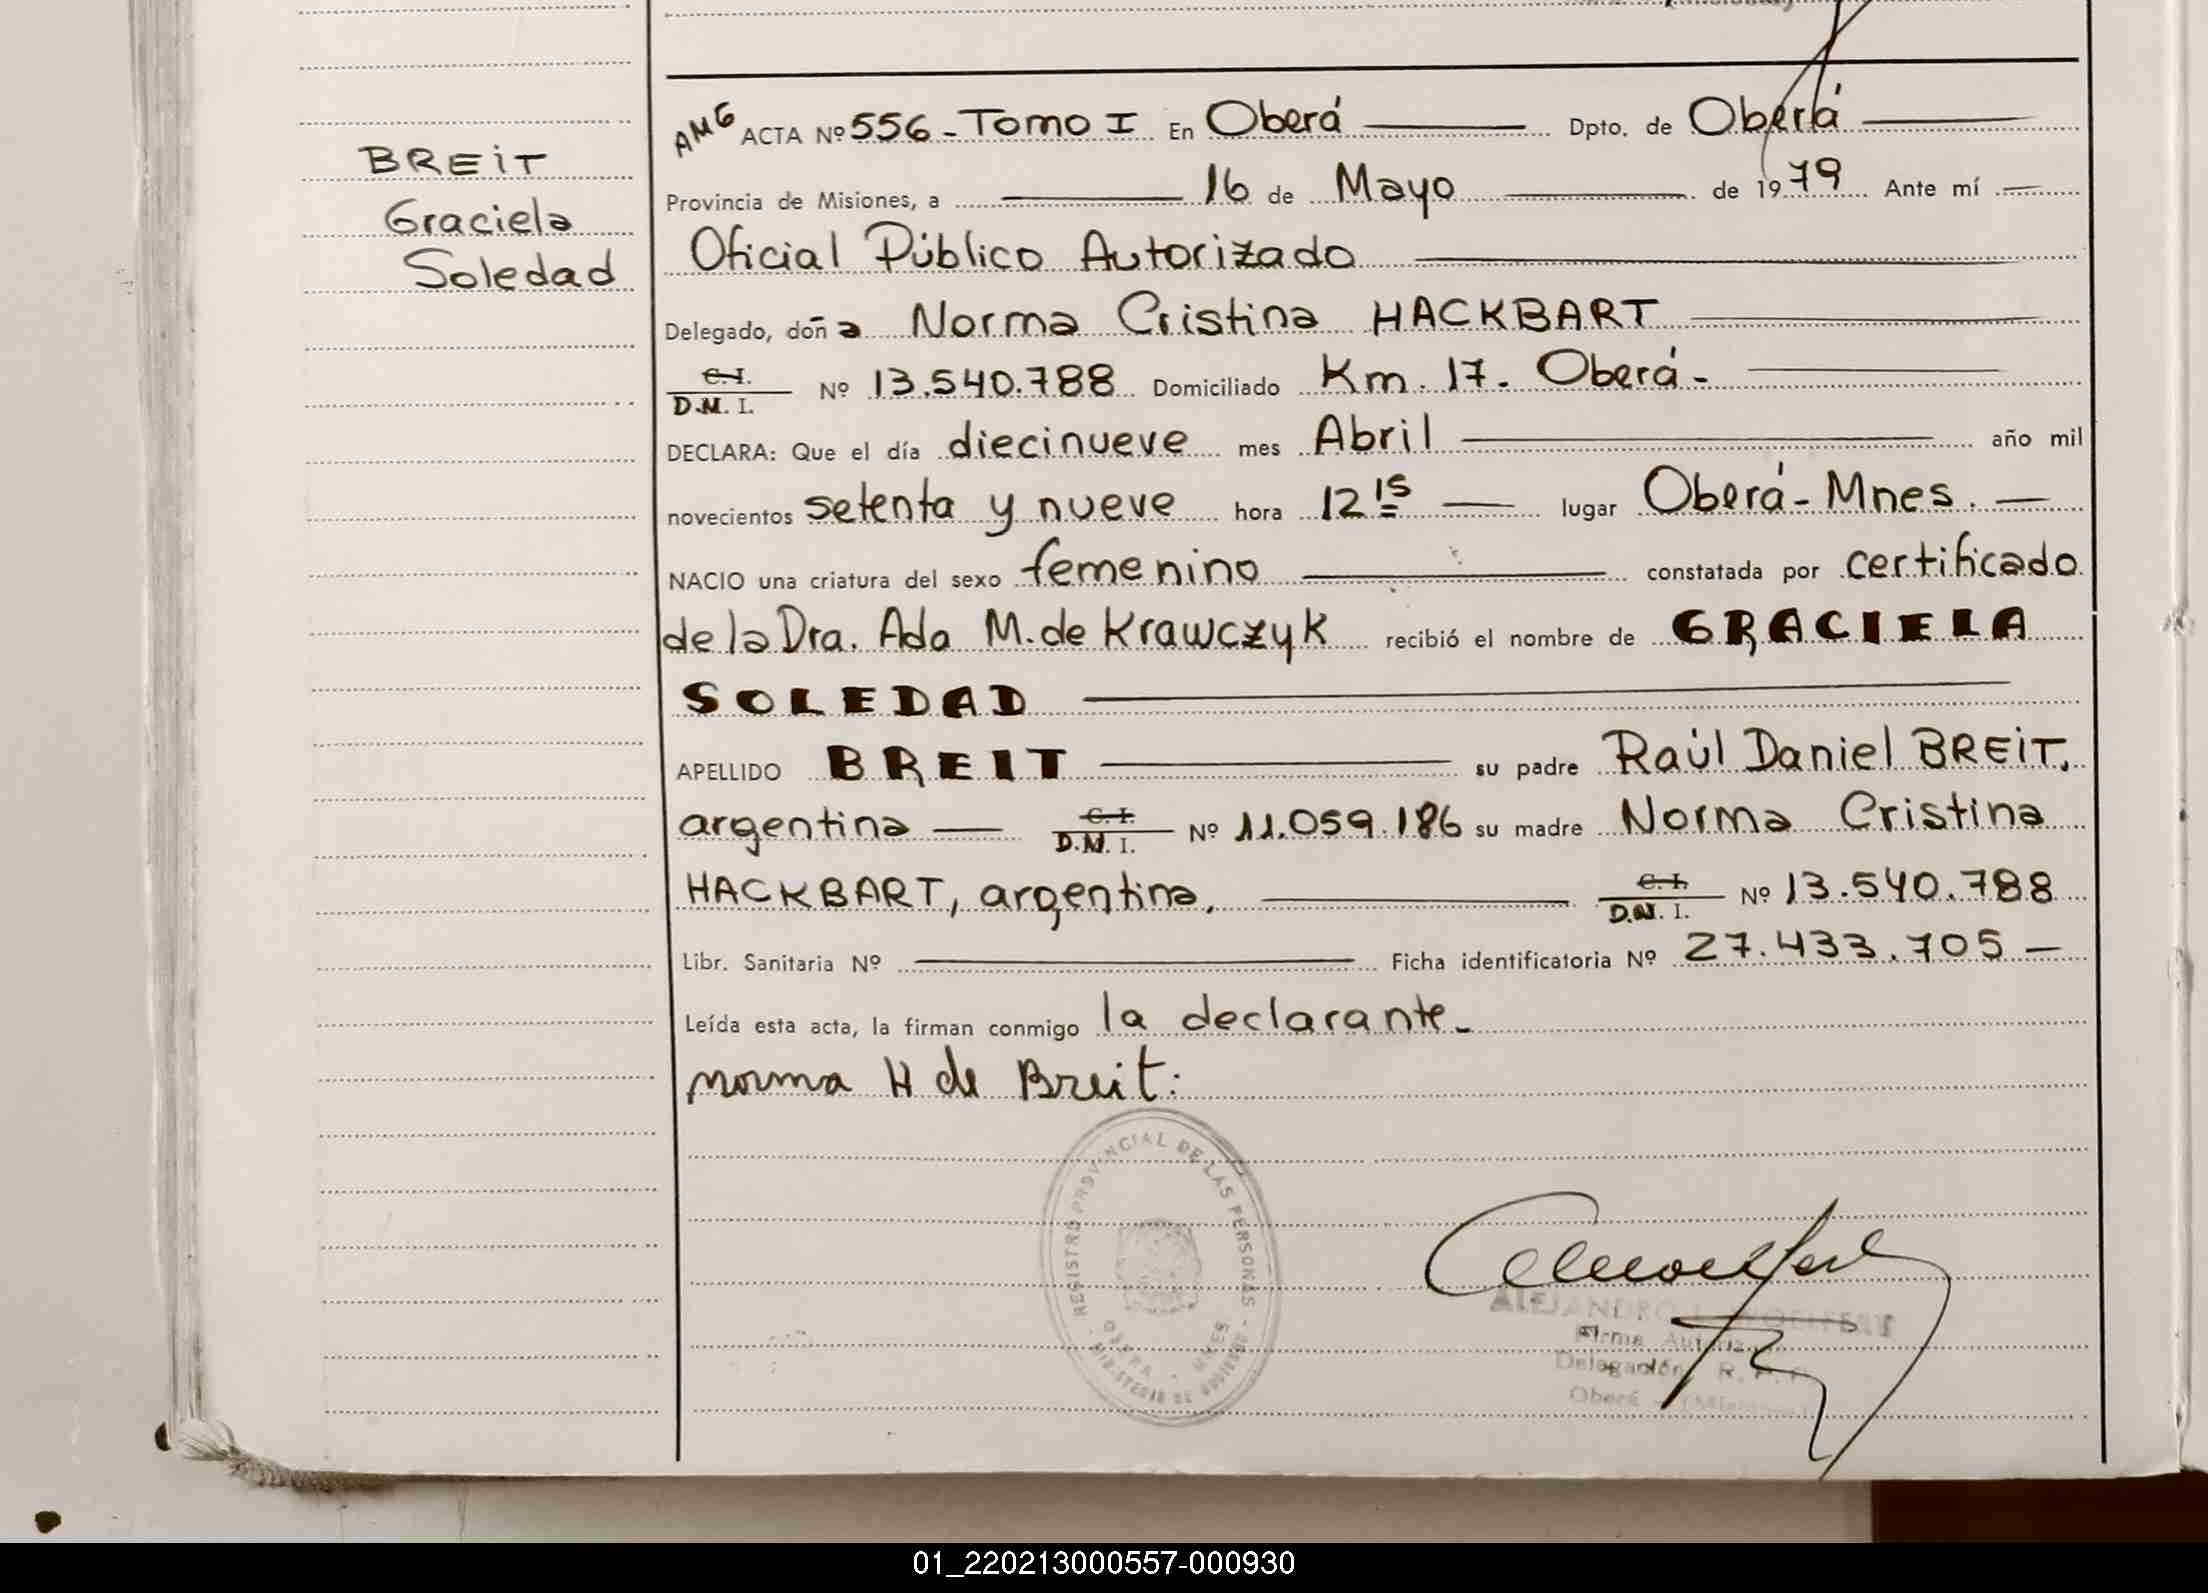 BREIT
Graciela
Soledad
AMG ACTA Nº 556 - Tomo I En Oberá Dpto. de Oberá
Provincia de Misiones, a 16 de Mayo de 1979 Ante mí
Oficial Público Autorizado
Delegado, doña Norma Cristina HACKBART
C. I.
D.N. I. Nº 13.540.788 Domiciliado Km. 17. Oberá -
DECLARA: Que el día diecinueve mes Abril año mil
novecientos setenta y nueve hora 12 15 lugar Oberá - Mnes.
NACIO una criatura del sexo femenino constatada por certificado
de la Dra. Ada M. de Krawczyk recibió el nombre de GRACIELA
SOLEDAD
APELLIDO BREIT su padre Raúl Daniel BREIT,
argentina C. I. D.N. I. Nº 11.059.186 su madre Norma Cristina
HACKBART, argentina, C. I. D.N. I. Nº 13.540.788
Libr. Sanitaria Nº Ficha identificatoria Nº 27.433.705 —
Leída esta acta, la firman conmigo la declarante.
Norma H de Breit.
REGISTRO PROVINCIAL DE LAS PERSONAS - MINISTERIO DE GOBIERNO -
OBERA - MNES
ALEJANDRO
Firma
Delegación R. P. P.
Oberá (Misiones)
01_220213000557-000930